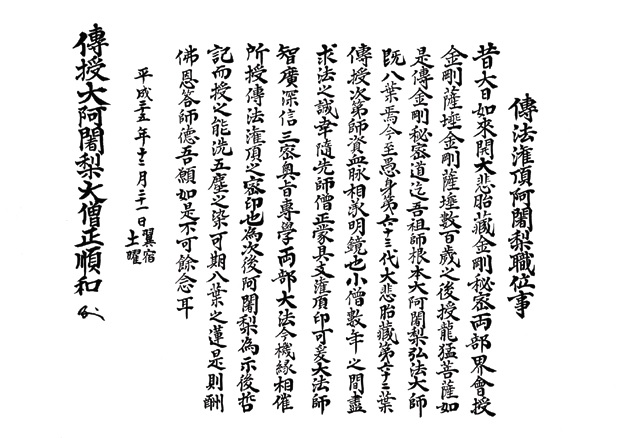 傳法潅頂阿闍梨職位事
昔大日如來開大悲胎藏金剛秘密両部界會授
金剛薩埵金剛薩埵数百歳之後授龍猛菩薩如
是傳金剛秘密道迄吾祖師根本大阿闍梨弘法大師
既八葉焉今至愚身第六十三代大悲胎藏第六十二葉
傳授次第師資血脉相承明鏡也小僧数年之間盡
求法之誠幸随先師僧正蒙具支潅頂印可爰大法師
智廣深信三密奥旨專學両部大法今機縁相催
所授傳法潅頂之密印也為次後阿闍梨為示後哲
記而授之能洗五塵之染可期八葉之蓮是則酬
佛恩答師徳吾願如是不可餘念耳
平成二十五年十二月二十一日 翼宿
土曜
傳授大阿闍梨大僧正順和